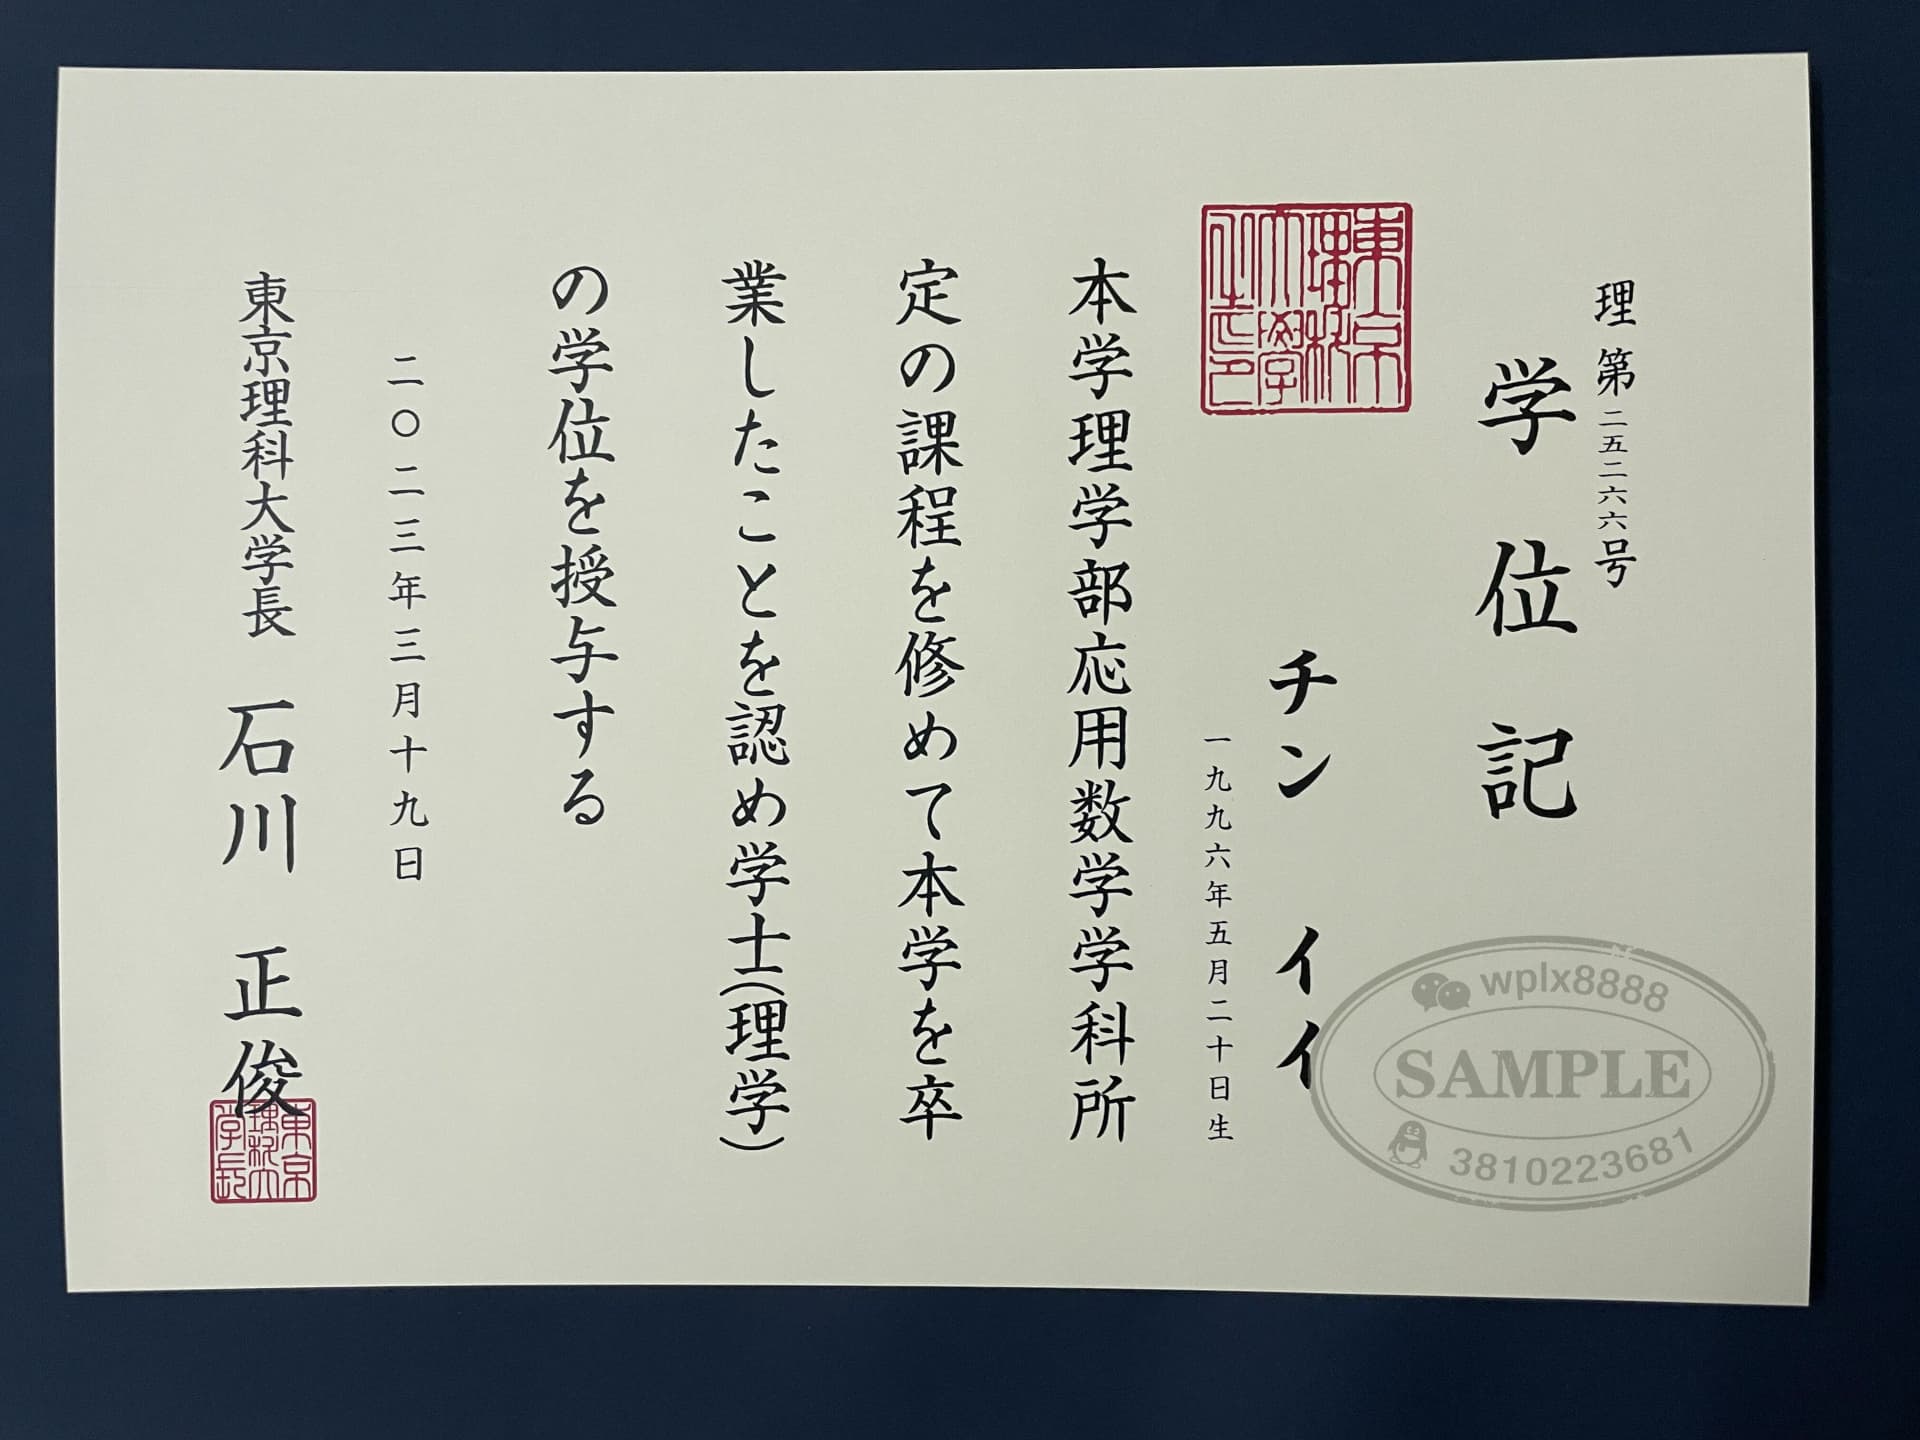 理第二五二六六号
学位記
チン　イイ
一九九六年五月二十日生
東京理科大学
本学理学部応用数学学科所
定の課程を修めて本学を卒
業したことを認め学士(理学)
の学位を授与する
二〇二三年三月十九日
東京理科大学長　石川　正俊
東京理科大学長
wplx8888
SAMPLE
3810223681